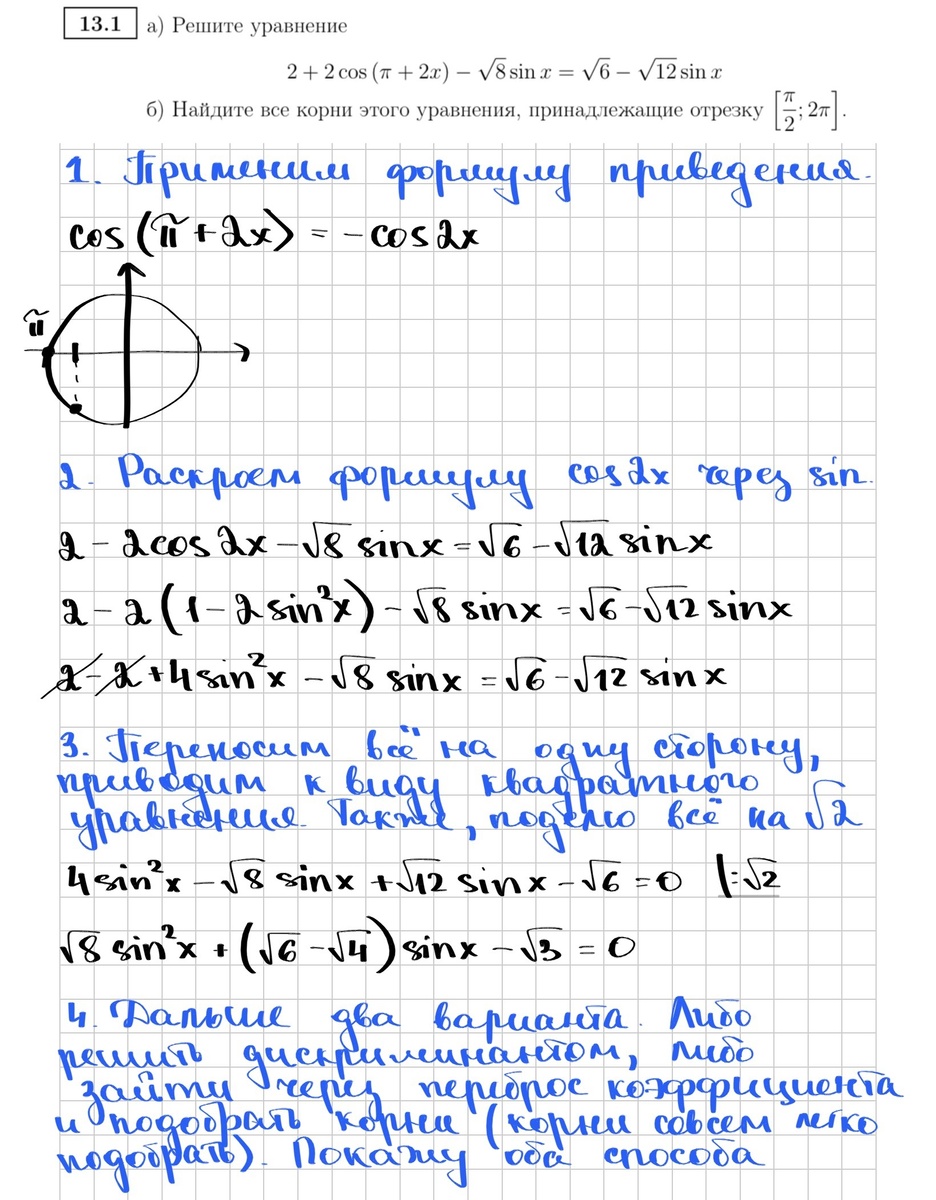 13.1 а) Решите уравнение
2 + 2 cos (π + 2x) − √8 sin x = √6 − √12 sin x
б) Найдите все корни этого уравнения, принадлежащие отрезку [π/2; 2π].
1. Применим формулу приведения.
cos(π+2x) = -cos2x
π
2. Раскроем формулу cos2x через sin.
2 - 2cos2x - √8 sinx = √6 - √12 sinx
2 - 2(1 - 2sin²x) - √8 sinx = √6 - √12 sinx
2 - 2 + 4sin²x - √8 sinx = √6 - √12 sinx
3. Переносим всё на одну сторону,
приводим к виду квадратного
уравнения. Также, поделю всё на √2
4sin²x - √8 sinx + √12 sinx - √6 = 0 |:√2
√8 sin²x + (√6 - √4) sinx - √3 = 0
4. Дальше два варианта. Либо
решить дискриминантом, либо
зайти через переброс коэффициента
и подобрать корни (корни совсем легко
подобрать). Покажу оба способа